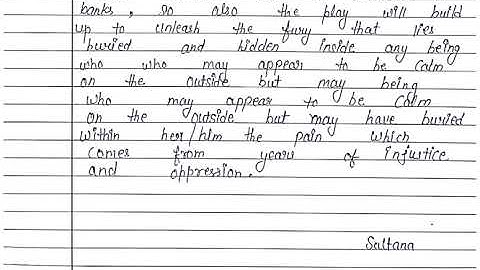 banks, so also the play will build
up to unleash the fury that lies
buried and hidden inside any being
who who may appear to be calm
on the outside but may being
who may appear to be calm
on the outside but may have buried
within her/him the pain which
comes from years of injustice
and oppression.
Sultana